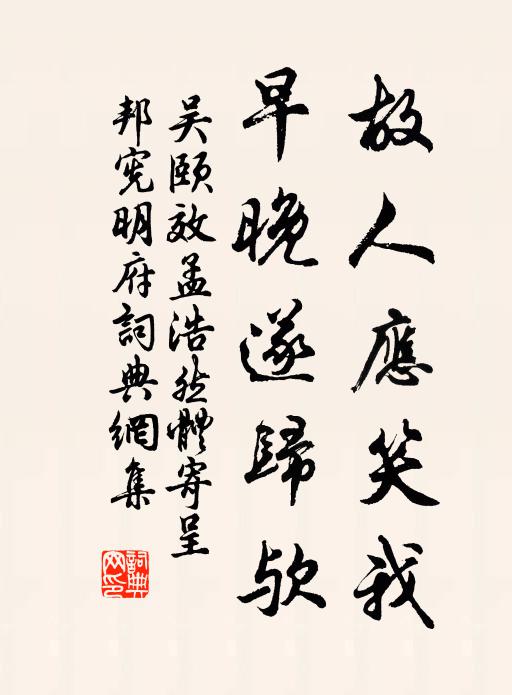 故人應笑我
早晚遂歸欤
吴頤效孟浩然體寄呈
邦宪明府詞典網集
詞典网印